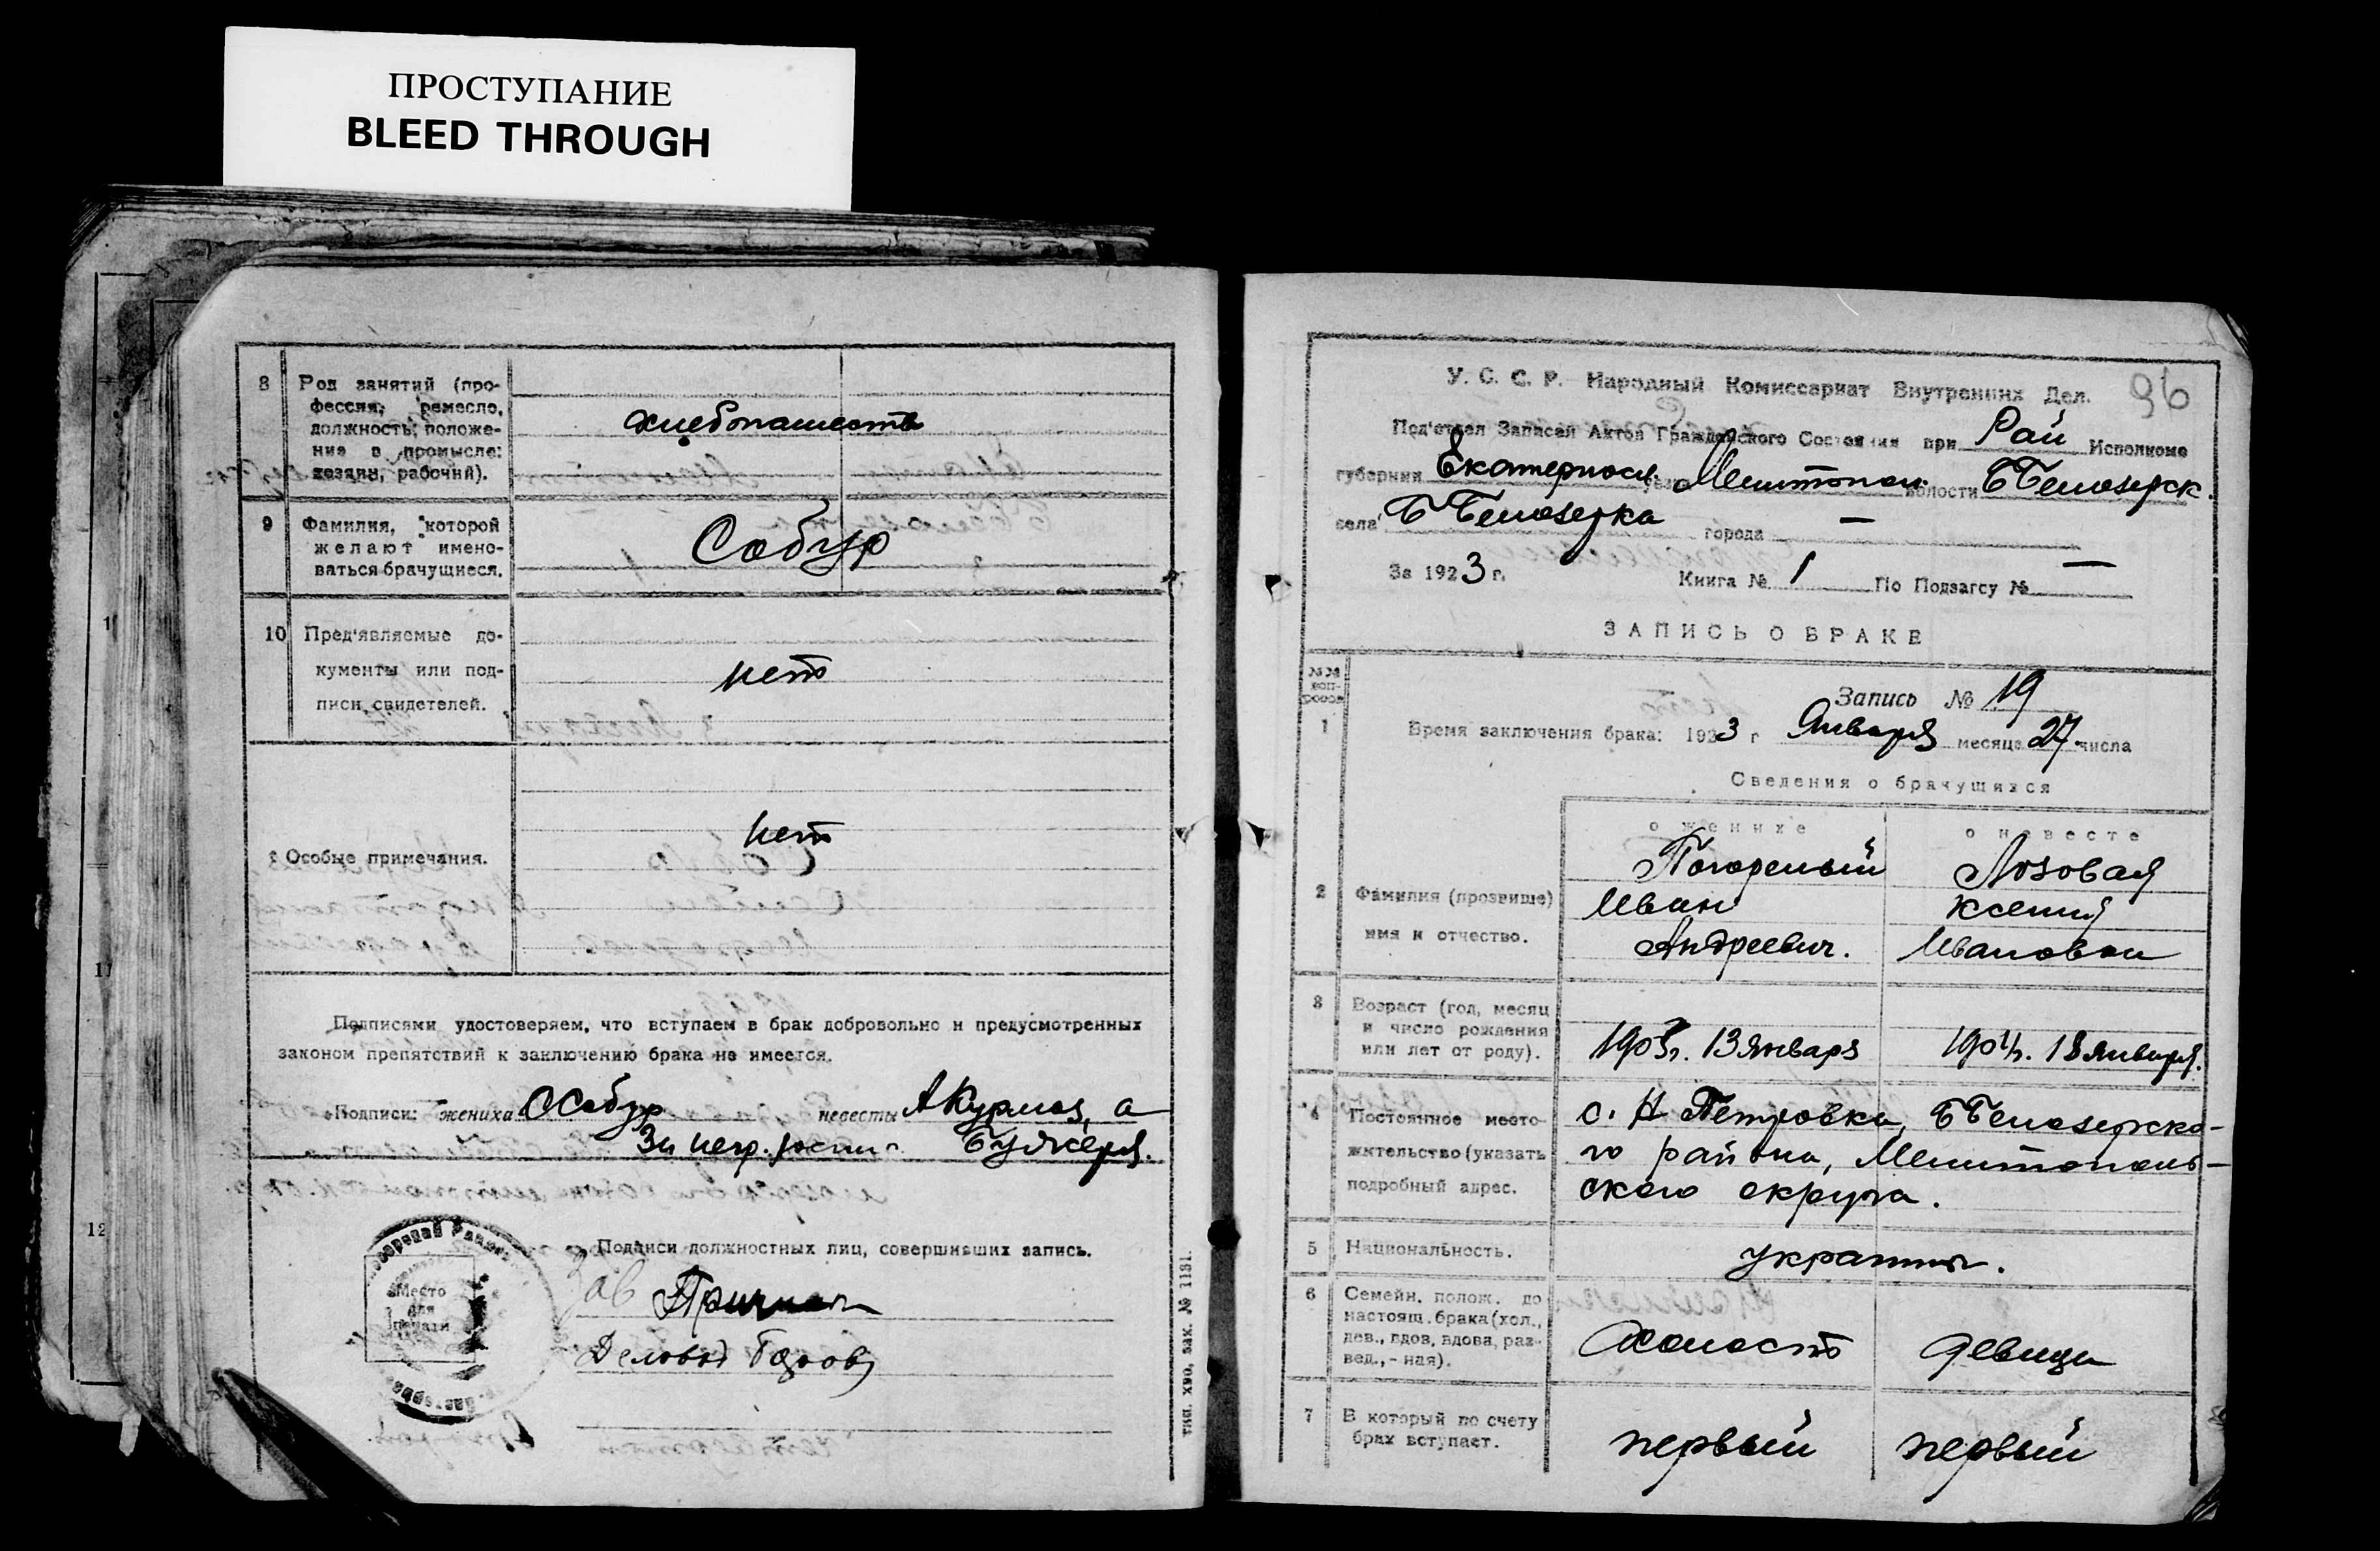 ПРОСТУПАНИЕ
BLEED THROUGH
8 Род занятий (про-
фессия, ремесло,
должность, положе-
ние в промысле:
хозяин, рабочий).
хлебопашество
9 Фамилия, которой
желают имено-
ваться брачущиеся.
Собур
10 Пред'являемые до-
кументы или под-
писи свидетелей.
нет
Особые примечания.
нет
Подписями удостоверяем, что вступаем в брак добровольно и предусмотренных
законом препятствий к заключению брака не имеется.
Подписи: жениха ССобур невесты А
За негр.
Подписи должностных лиц, совершивших запись.
Место
для
печати
Зав
Деловод
тип. хво, зак. № 1181.
1
11
12
96
У. С. С. Р. Народный Комиссариат Внутренних Дел.
Под'отдел Записей Актов Гражданского Состояния при Рай Исполкоме
губернии Екатериносл. уезда Мелитопол. волости ББелозерск.
села ББелозерка города —
За 1923 г. Книга № 1 По Подзагсу № —
ЗАПИСЬ О БРАКЕ
№№
воп-
росов
Запись № 19
1 Время заключения брака: 1923 г Января месяца 27 числа
Сведения о брачущихся
о женихе о невесте
2 Фамилия (прозвище)
имя и отчество.
Погорелый Лозовая
Иван Ксения
Андреевич. Ивановна
3 Возраст (год, месяц
и число рождения
или лет от роду).
13 января 1904г. 18 января.
4 Постоянное место-
жительство (указать
подробный адрес.
с. Н Петровка, ББелозерско-
го района, Мелитополь-
ского округа.
5 Национальность.
6 Семейн. полож. до
настоящ. брака (хол.,
дев., вдов, вдова, раз-
вед.,- ная).
холост девица
7 В который по счету
брак вступает.
первый первый